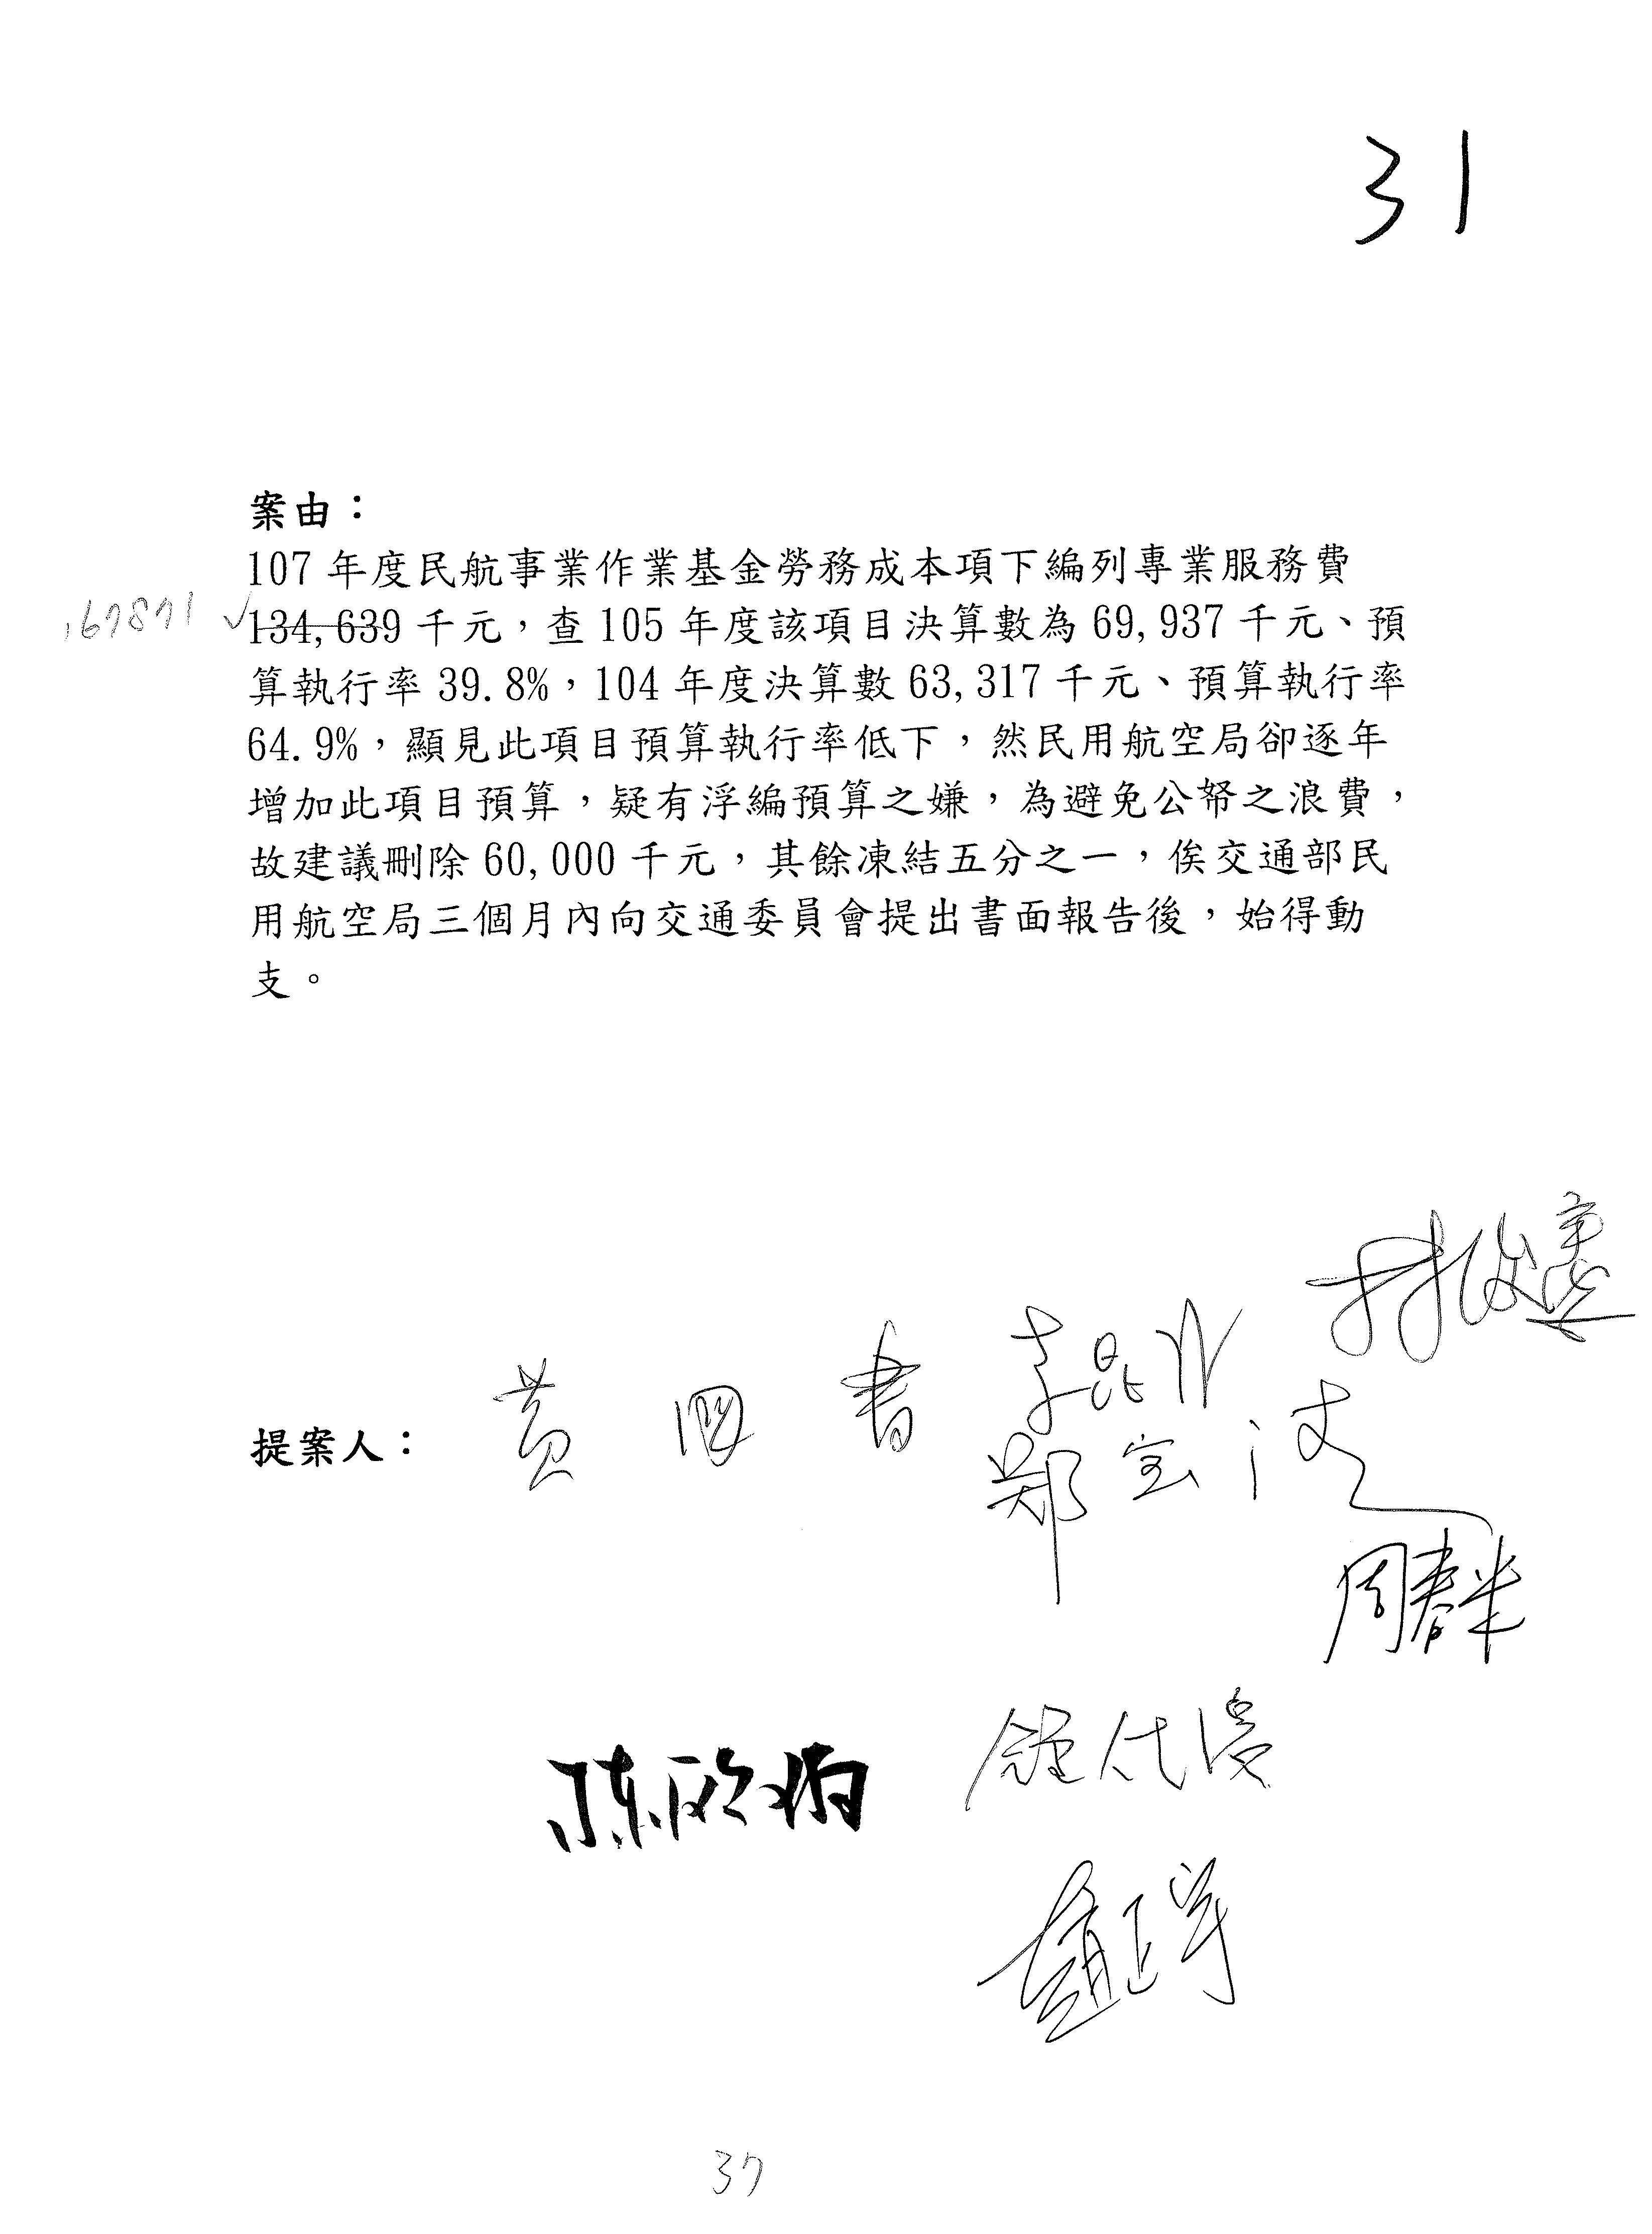 31
案由：
107 年度民航事業作業基金勞務成本項下編列專業服務費
167871 ✓
134,639 千元，查 105 年度該項目決算數為 69,937 千元、預
算執行率 39.8%，104 年度決算數 63,317 千元、預算執行率
64.9%，顯見此項目預算執行率低下，然民用航空局卻逐年
增加此項目預算，疑有浮編預算之嫌，為避免公帑之浪費，
故建議刪除 60,000 千元，其餘凍結五分之一，俟交通部民
用航空局三個月內向交通委員會提出書面報告後，始得動
支。
林俊憲
提案人：
黃國書
李昆澤
鄭宝清
周春米
陳欧珀
鍾佳濱
37